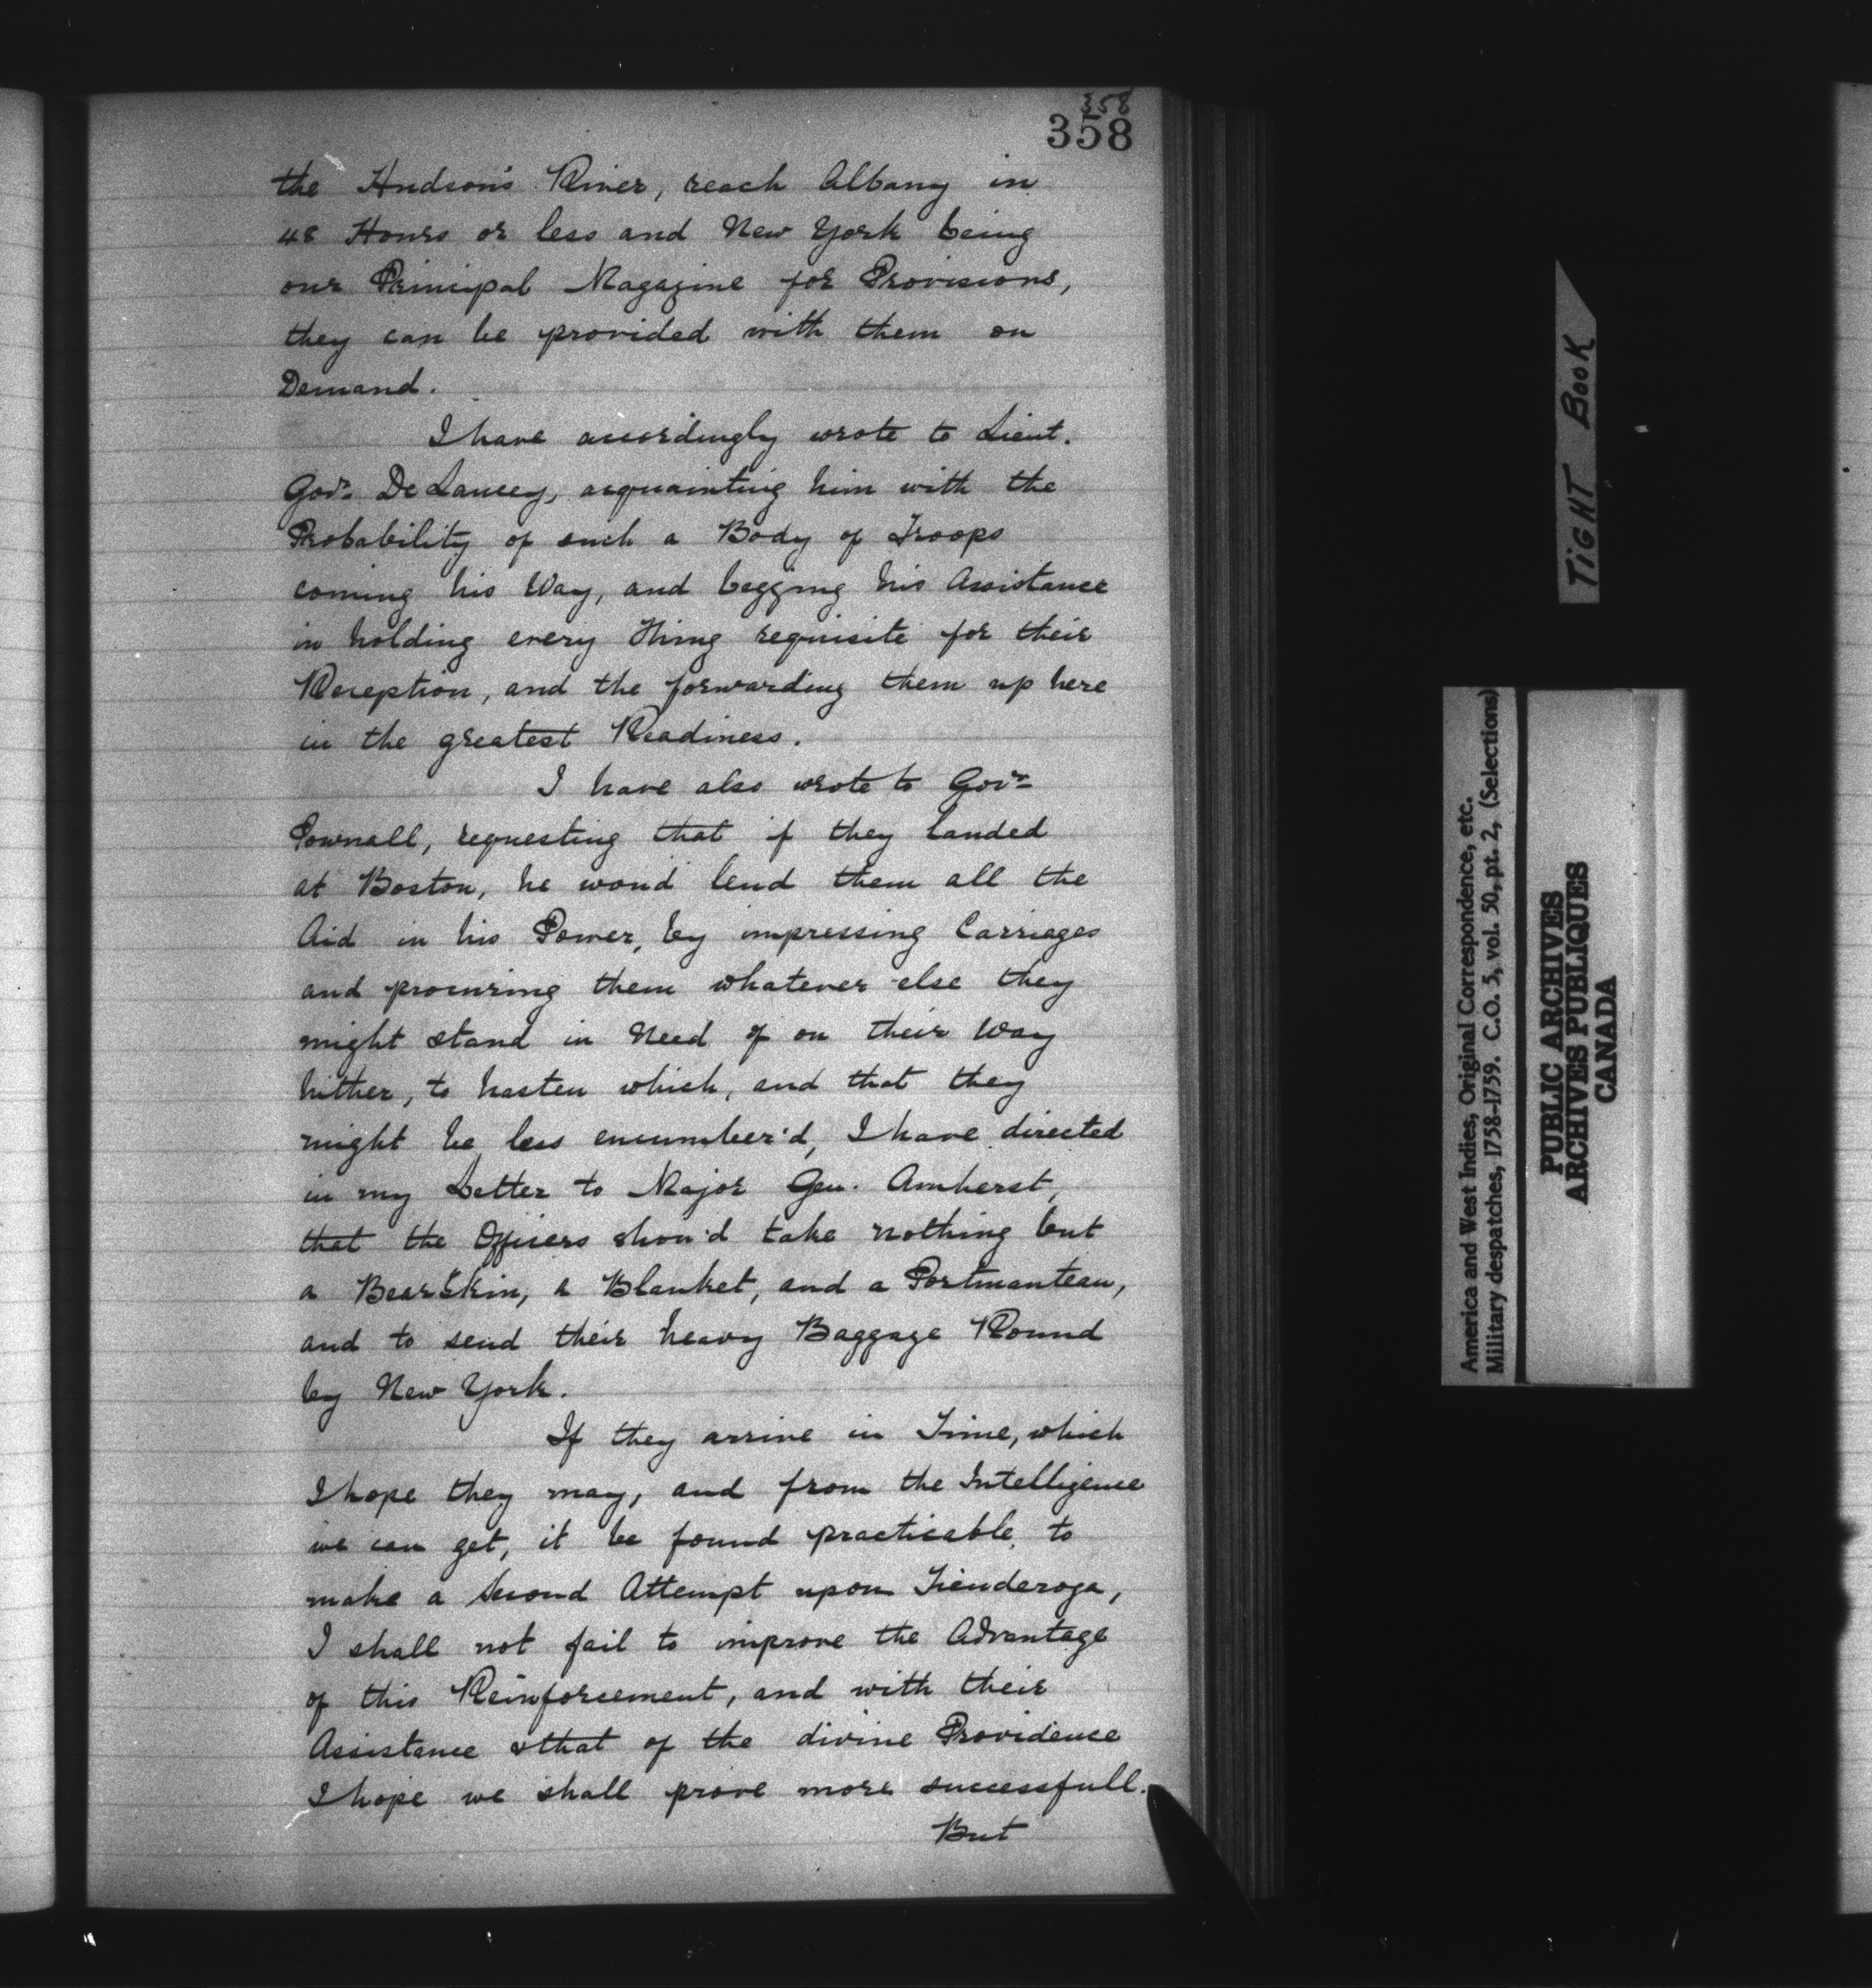 358
358
the Hudson's River, reach Albany in
48 Hours or less and New York being
our Principal Magazine for Provisions,
they can be provided with them on
Demand.
I have accordingly wrote to Lieut.
Govr. De Lancey, acquainting him with the
Probability of such a Body of Troops
coming his Way, and begging his Assistance
in holding every Thing requisite for their
Reception, and the forwarding them up here
in the greatest Readiness.
I have also wrote to Govr.
Pownall, requesting that if they landed
at Boston, he wou'd lend them all the
Aid in his Power, by impressing Carriages
and procuring them whatever else they
might stand in Need of on their Way
hither, to hasten which, and that they
might be less encumber'd, I have directed
in my Letter to Major Gen. Amherst,
that the Officers shou'd take nothing but
a BearSkin, a Blanket, and a Portmanteau,
and to send their heavy Baggage Round
by New York.
If they arrive in Time, which
I hope they may, and from the Intelligence
we can get, it be found practicable, to
make a Second Attempt upon Tienderoga,
I shall not fail to improve the Advantage
of this Reinforcement, and with their
Assistance & that of the divine Providence
I hope we shall prove more successfull.
But
TIGHT BOOK
America and West Indies, Original Correspondence, etc.
Military despatches, 1758-1759. C.O. 5, vol. 50, pt. 2, (Selections)
PUBLIC ARCHIVES
ARCHIVES PUBLIQUES
CANADA